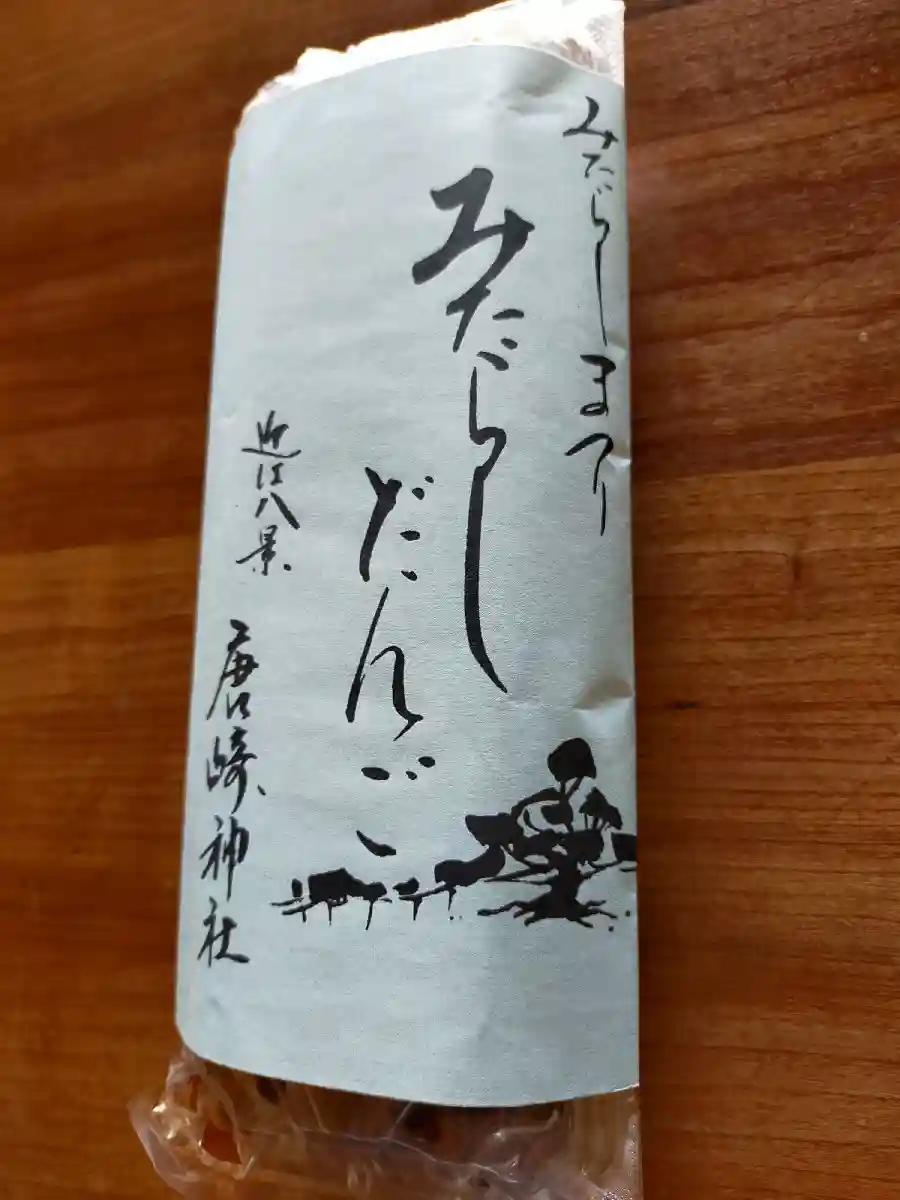 みたらしまつり
みたらし
だんご
近江八景
唐崎神社